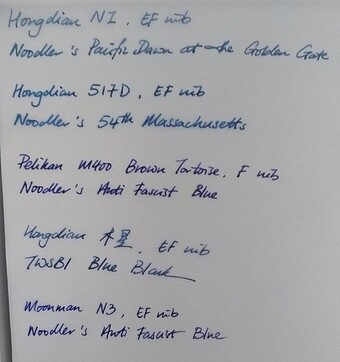 Hongdian N1, EF nib
Noodler's Pacific Dawn at the Golden Gate
Hongdian 517D, EF nib
Noodler's 54th Massachusetts
Pelikan M400 Brown Tortoise, F nib
Noodler's Anti Fascist Blue
Hongdian 木星, EF nib
TWSBI Blue Black
Moonman N3, EF nib
Noodler's Anti Fascist Blue